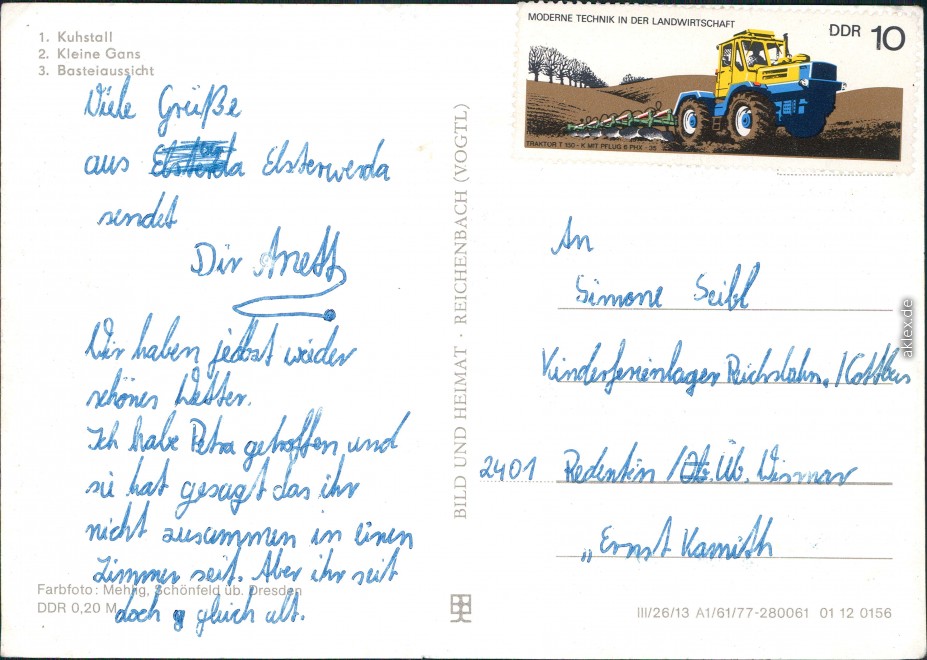 1. Kuhstall
2. Kleine Gans
3. Basteiaussicht
Viele Grüße
aus Elsterwerda
sendet
Dir Anett
Wir haben jetzt wieder
schönes Wetter.
Ich habe Petra getroffen und
sie hat gesagt das ihr
nicht zusammen in einen
Zimmer seit. Aber ihr seit
doch gleich alt.
Farbfoto: Mehlig, Schönfeld üb. Dresden
DDR 0,20 M
BILD UND HEIMAT · REICHENBACH (VOGTL)
MODERNE TECHNIK IN DER LANDWIRTSCHAFT
DDR 10
TRAKTOR T 150 - K MIT PFLUG B PHX - 35
An
Simone Seibl
Kinderferienlager Reichsbahn./Cottbus
2401 Redentin / Üb. Wismar
„Ernst Kamith
III/26/13 A1/61/77-280061 01 12 0156
aklex.de